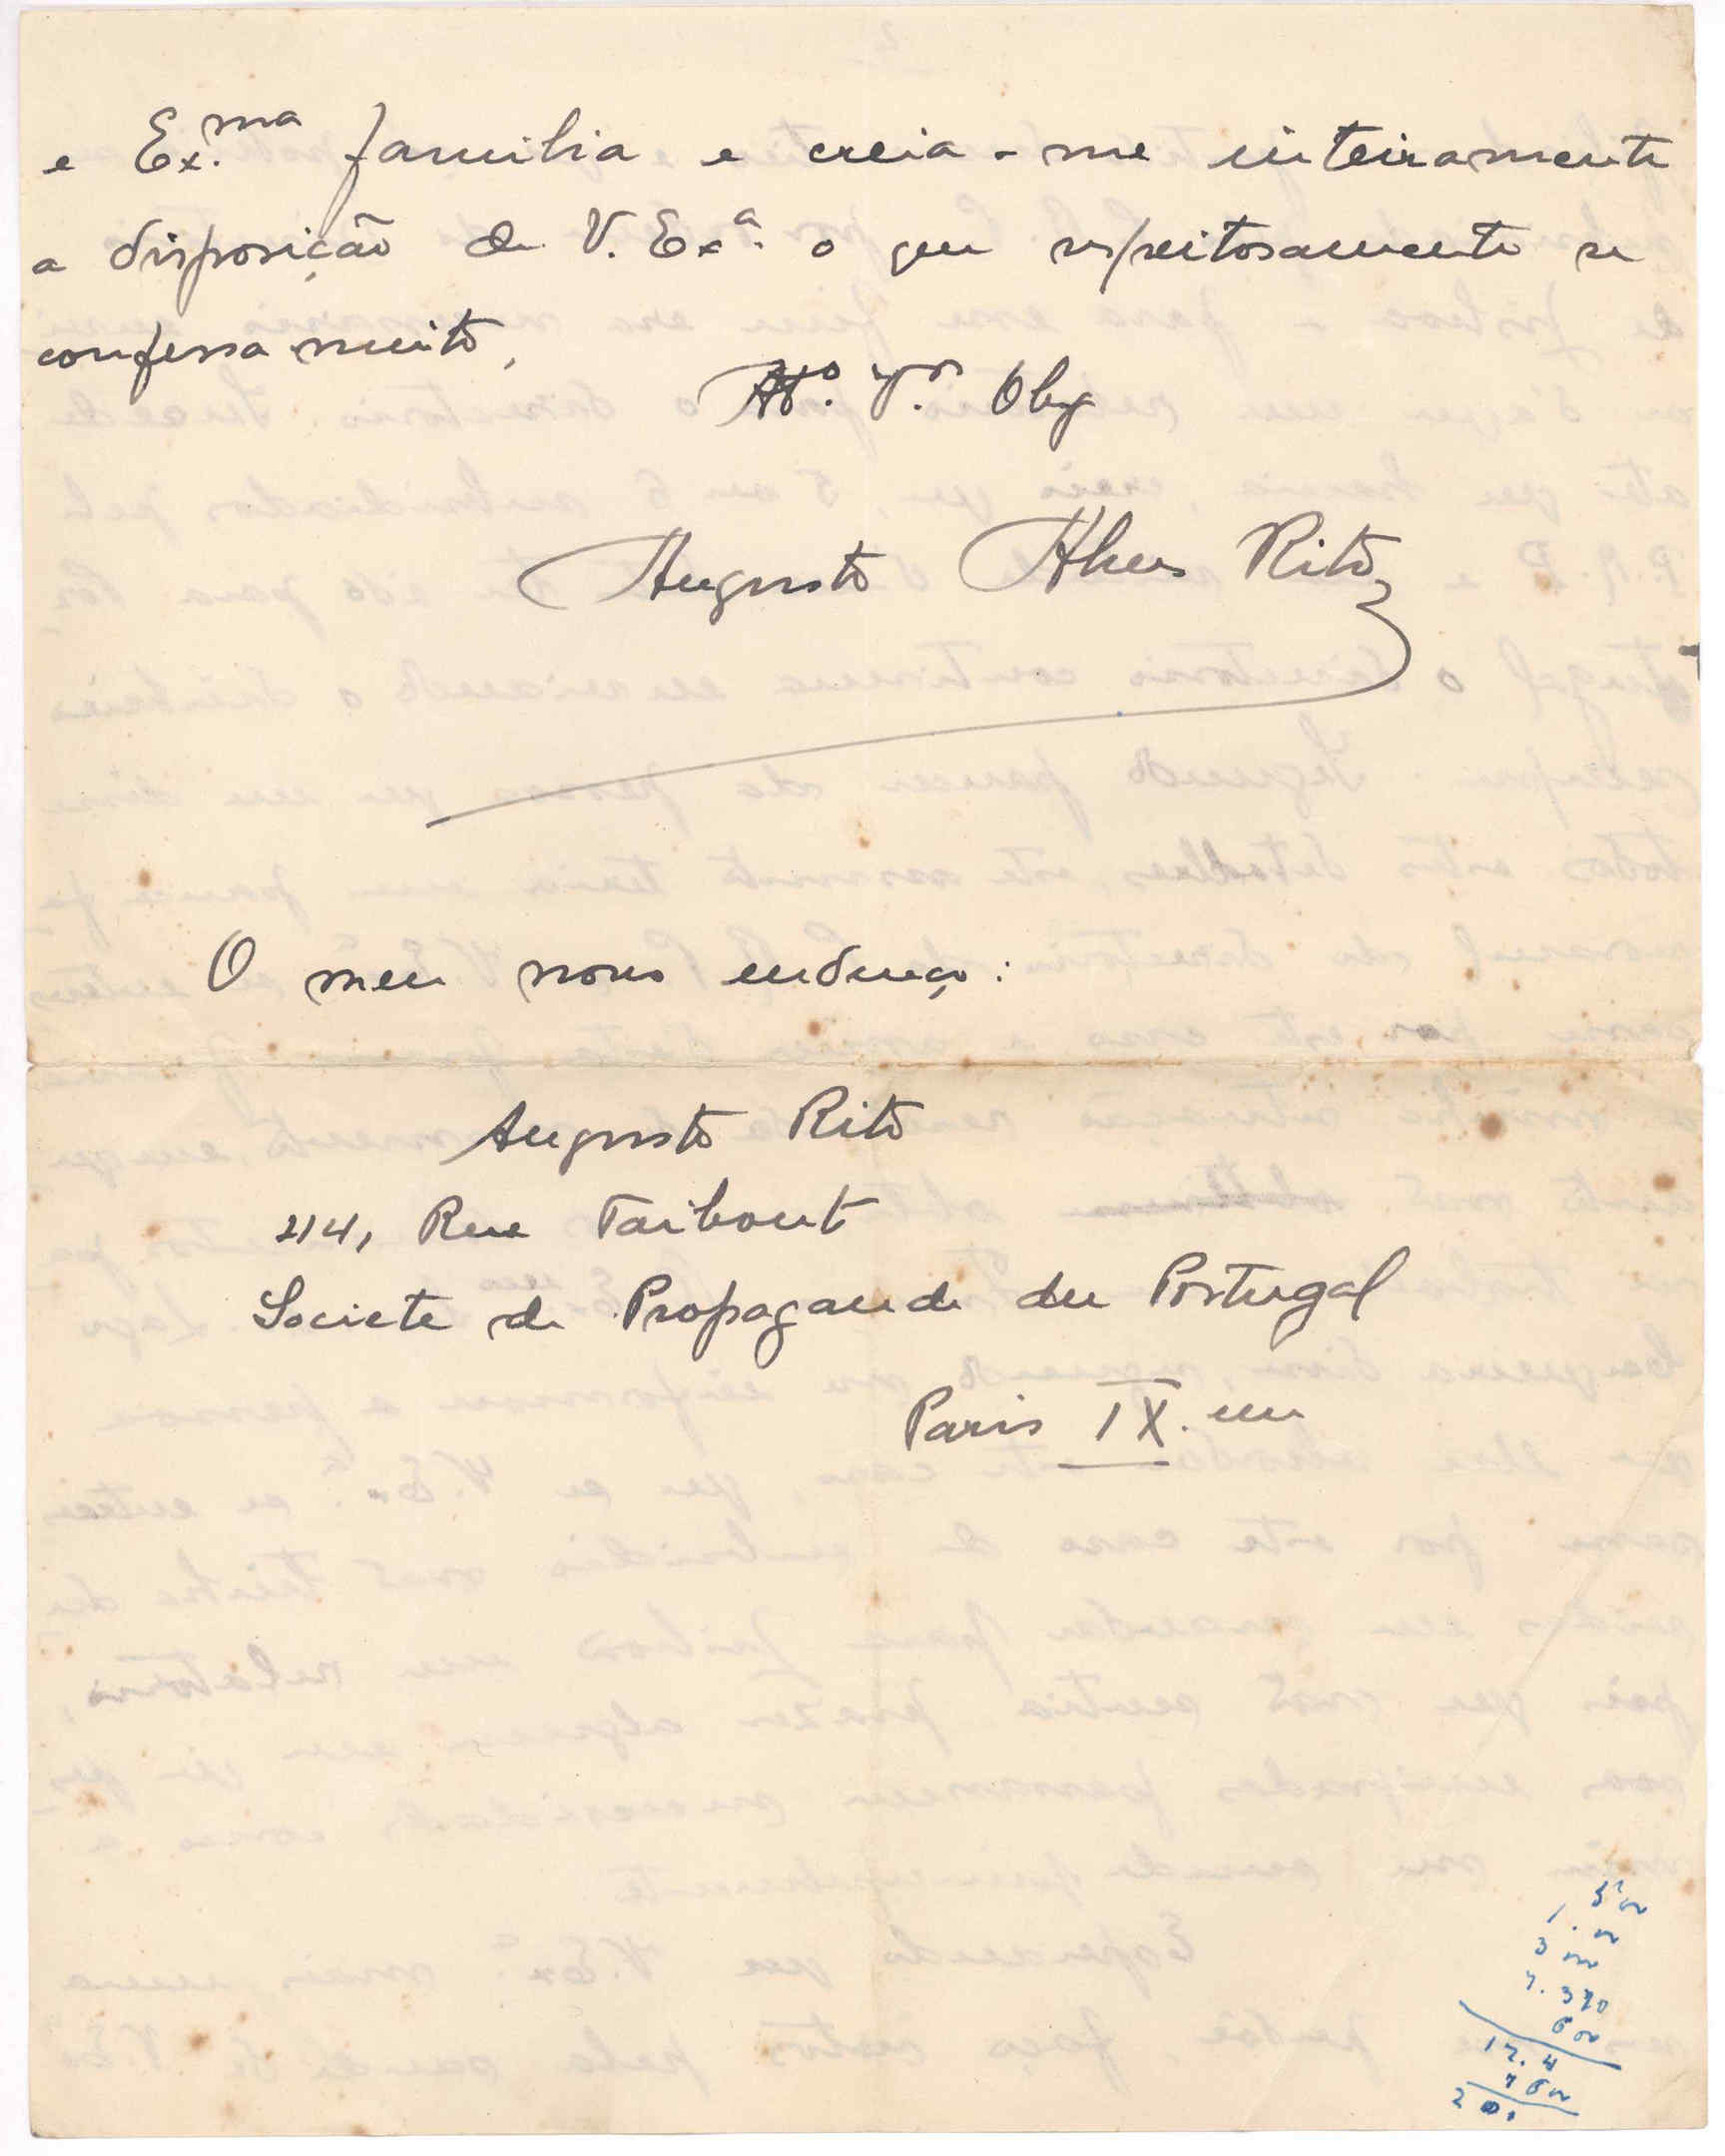 e Ex.ma familia e creia-me inteiramente
a disposição de V. Exª. o que respeitosamente se
confessa muito,
Atº. Vor. Obg
Augusto Alves Rito
O meu novo endereço:
Augusto Rito
214, Rue Taitbout
Societe de Propagande du Portugal
Paris IX. em